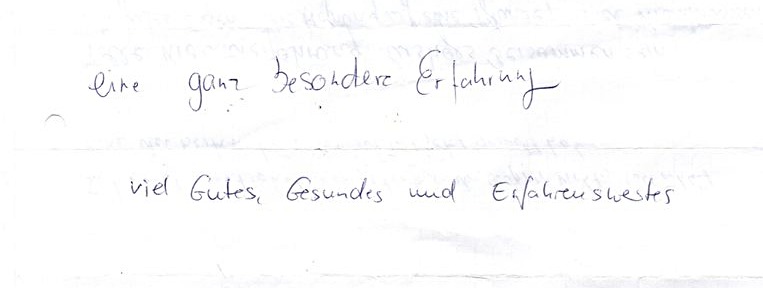 eine ganz besondere Erfahrung
viel Gutes, Gesundes und Erfahrenswertes